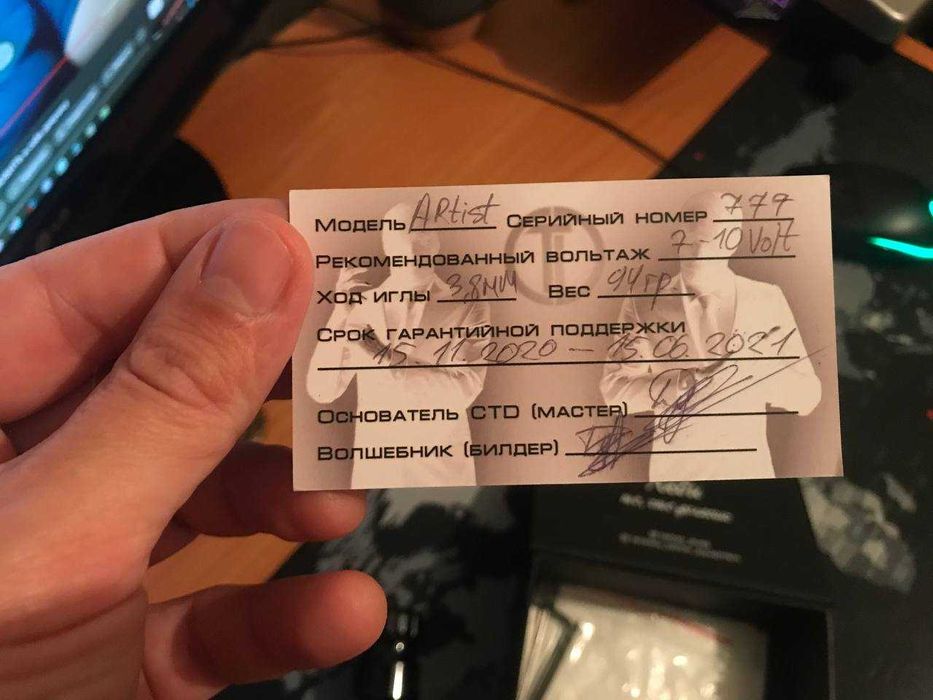 Модель ARtist Серийный номер 779
Рекомендованный вольтаж 7-10 Volt
Ход иглы 3,8мм Вес 94гр.
Срок гарантийной поддержки
15.11.2020 — 15.06.2021
Основатель CTD (мастер)
Волшебник (билдер)